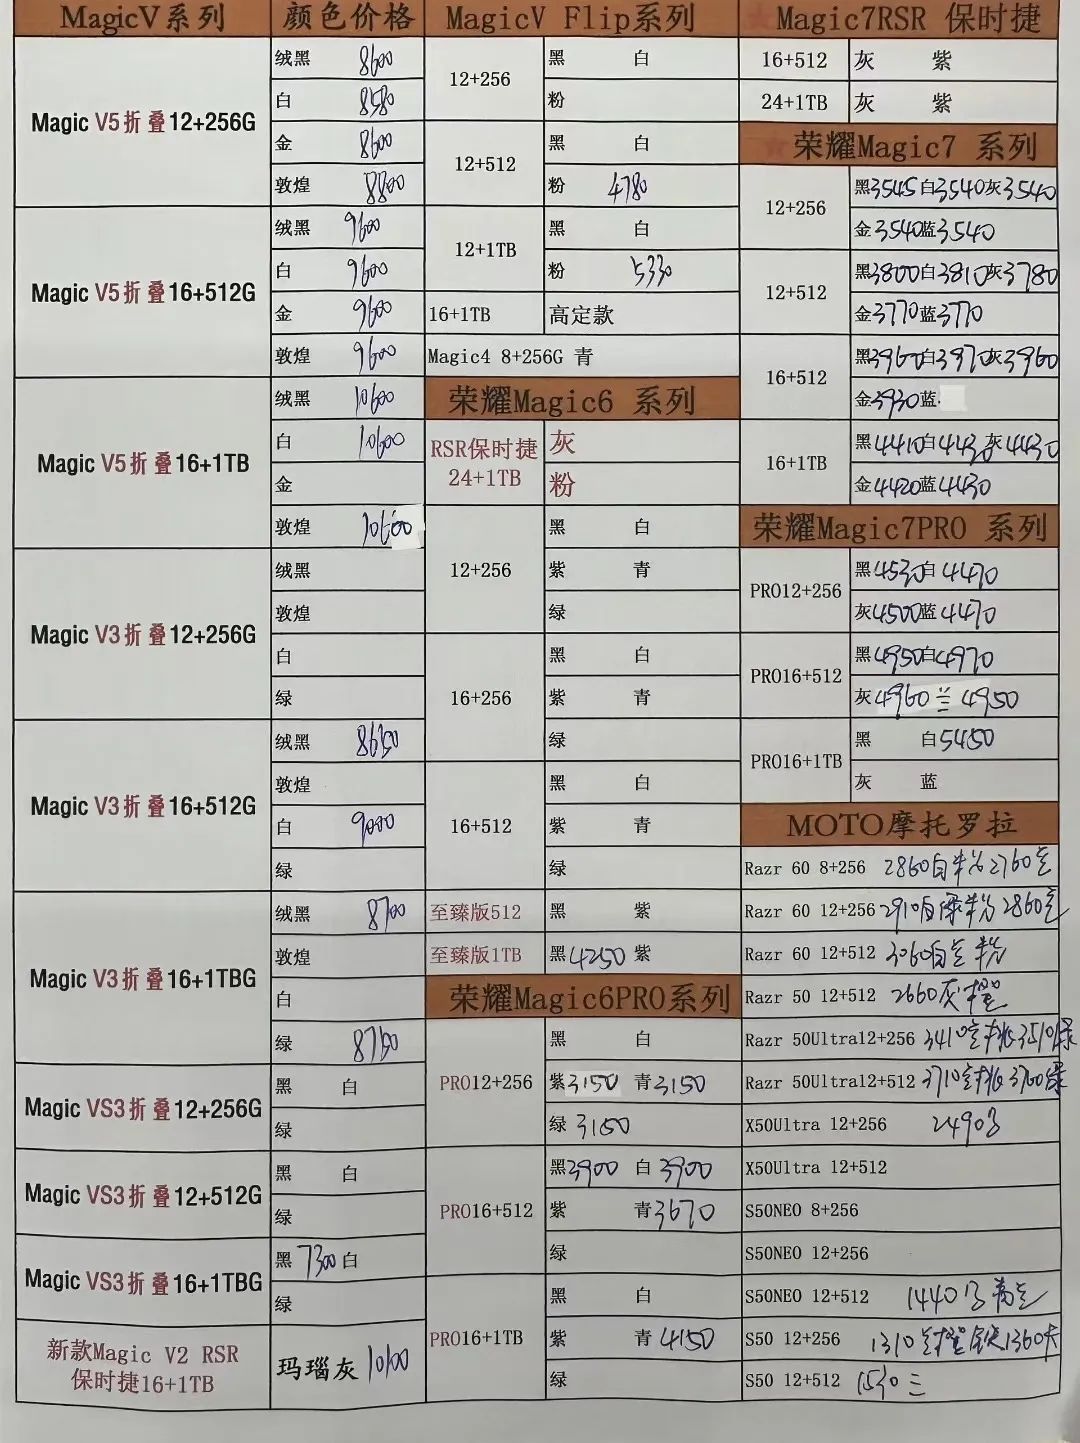 MagicV系列 颜色价格
Magic V5折叠12+256G
绒黑 8600
白 8580
金 8600
敦煌 8800
Magic V5折叠16+512G
绒黑 9600
白 9600
金 9600
敦煌 9600
Magic V5折叠16+1TB
绒黑 10600
白 10600
金
敦煌 10600
Magic V3折叠12+256G
绒黑
敦煌
白
绿
Magic V3折叠16+512G
绒黑
敦煌
白 9000
绿
Magic V3折叠16+1TBG
绒黑 8700
敦煌
白
绿
Magic VS3折叠12+256G
黑 白
绿
Magic VS3折叠12+512G
黑 白
绿
Magic VS3折叠16+1TBG
黑7300白
绿
新款Magic V2 RSR
保时捷16+1TB
玛瑙灰
MagicV Flip系列
12+256
黑 白
粉
12+512
黑 白
粉 4780
12+1TB
黑 白
粉 5330
16+1TB 高定款
Magic4 8+256G 青
荣耀Magic6 系列
RSR保时捷
24+1TB
灰
粉
12+256
黑 白
紫 青
绿
16+256
黑 白
紫 青
绿
16+512
黑 白
紫 青
绿
至臻版512 黑 紫
至臻版1TB 黑4250 紫
荣耀Magic6PRO系列
PRO12+256
黑 白
紫3150 青3150
绿 3150
PRO16+512
黑3900 白3900
紫 青3670
绿
PRO16+1TB
黑 白
紫 青4150
绿
Magic7RSR 保时捷
16+512 灰 紫
24+1TB 灰 紫
荣耀Magic7 系列
12+256
黑3545白3540灰3540
金3540蓝3540
12+512
黑3800白3810灰3780
金3770蓝3770
16+512
黑3960白3970灰3960
金3930蓝
16+1TB
黑4410白4430灰4430
金4420蓝4430
荣耀Magic7PRO 系列
PRO12+256
黑4530白4470
灰4500蓝4470
PRO16+512
黑4950白4970
灰4960兰4950
PRO16+1TB
黑 白5450
灰 蓝
MOTO摩托罗拉
Razr 60 8+256 2860白 2760
Razr 60 12+256 2910白绿粉 2860
Razr 60 12+512 3060白 粉
Razr 50 12+512 2660灰橙
Razr 50Ultra12+256 3410 桃3510绿
Razr 50Ultra12+512 3710 桃3760绿
X50Ultra 12+256 2490
X50Ultra 12+512
S50NEO 8+256
S50NEO 12+256
S50NEO 12+512 1440
S50 12+256 1310 橙 1360灰
S50 12+512 1530兰